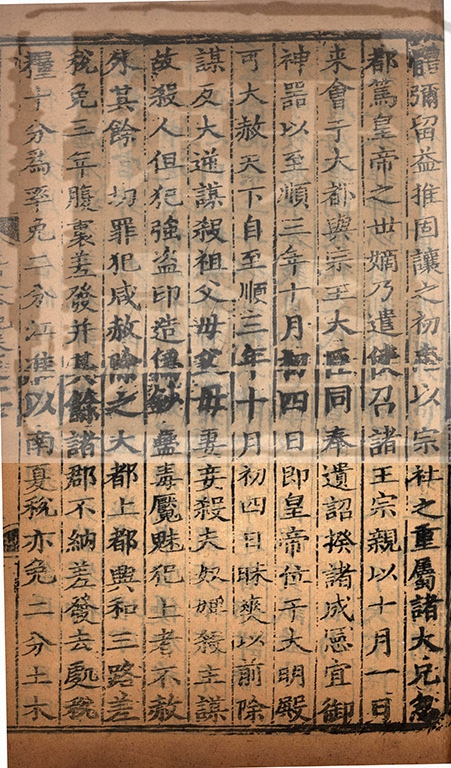 體彌留益推固讓之初志以宗社之重屬諸大兄忽
都篤皇帝之世嫡乃遣使召諸王宗親以十月一日
来會于大都與宗王大臣同奉遺詔揆諸成憲宜御
神器以至順三年十月初四日即皇帝位于大明殿
可大赦天下自至順三年十月初四日昧爽以前除
謀反大逆謀殺祖父母父母妻妾殺夫奴婢殺主謀
故殺人但犯強盗印造偽鈔蠱毒魘魅犯上者不赦
外其餘一切罪犯咸赦除之大都上都興和三路差
稅免三年腹裏差發并其餘諸郡不納差發去處稅
糧十分為率免二分江淮以南夏稅亦免二分土木